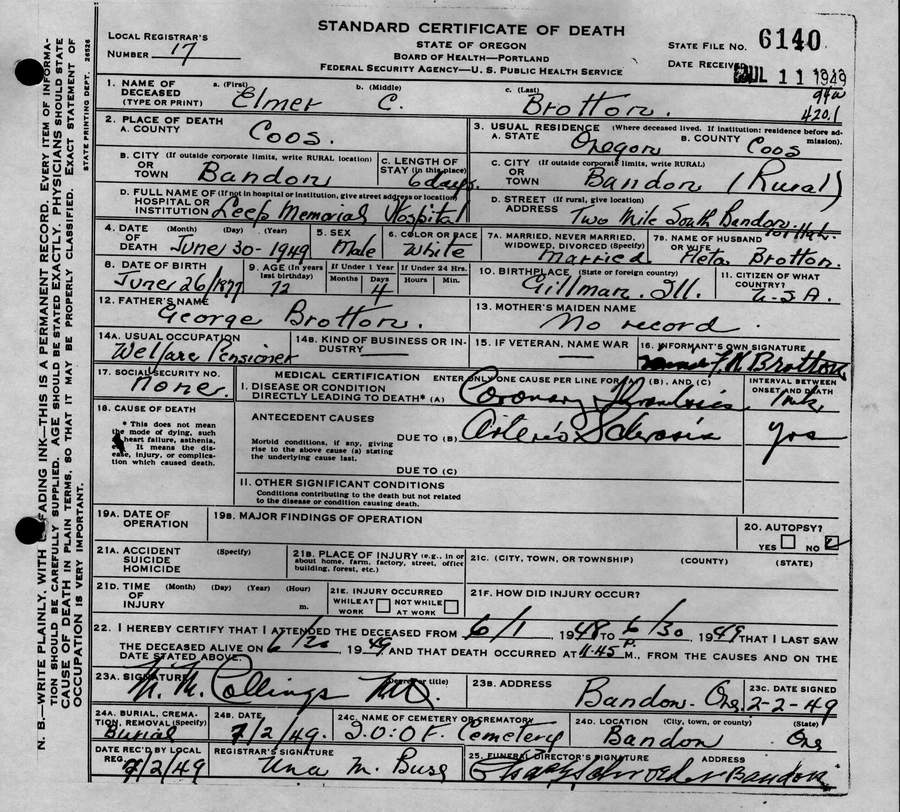 STANDARD CERTIFICATE OF DEATH
STATE OF OREGON
BOARD OF HEALTH—PORTLAND
FEDERAL SECURITY AGENCY—U. S. PUBLIC HEALTH SERVICE
LOCAL REGISTRAR'S
NUMBER 17
STATE FILE NO. 6140
DATE RECEIVED JUL 11 1949
N. B.—WRITE PLAINLY, WITH FADING INK—THIS IS A PERMANENT RECORD. EVERY ITEM OF INFORMA-
TION SHOULD BE CAREFULLY SUPPLIED. AGE SHOULD BE STATED EXACTLY. PHYSICIANS SHOULD STATE
CAUSE OF DEATH IN PLAIN TERMS, SO THAT IT MAY BE PROPERLY CLASSIFIED. EXACT STATEMENT OF
OCCUPATION IS VERY IMPORTANT.
STATE PRINTING DEPT. 26526
94a
420.1
1. NAME OF DECEASED (TYPE OR PRINT) a. (First) Elmer b. (Middle) C. c. (Last) Brotton.
2. PLACE OF DEATH
A. COUNTY Coos.
3. USUAL RESIDENCE (Where deceased lived. If institution: residence before admission).
A. STATE Oregon B. COUNTY Coos
B. CITY (If outside corporate limits, write RURAL location) OR TOWN Bandon
C. LENGTH OF STAY (in this place) 6 days.
C. CITY (If outside corporate limits, write RURAL) OR TOWN Bandon (Rural)
D. FULL NAME OF (If not in hospital or institution, give street address or location) HOSPITAL OR INSTITUTION Leep Memorial Hospital
D. STREET (If rural, give location) ADDRESS Two Mile South Bandon
4. DATE OF DEATH (Month) (Day) (Year) June 30-1949
5. SEX Male
6. COLOR OR RACE White
7A. MARRIED, NEVER MARRIED, WIDOWED, DIVORCED (Specify) Married
7B. NAME OF HUSBAND OR WIFE Pleta Brotton.
8. DATE OF BIRTH June 26/1877
9. AGE (In years last birthday) 72
If Under 1 Year Months Days 4
If Under 24 Hrs. Hours Min.
10. BIRTHPLACE (State or foreign country) Gillman. Ill.
11. CITIZEN OF WHAT COUNTRY? U-S.A.
12. FATHER'S NAME George Brotton.
13. MOTHER'S MAIDEN NAME No record.
14A. USUAL OCCUPATION Welfare Pensioner
14B. KIND OF BUSINESS OR INDUSTRY —
15. IF VETERAN, NAME WAR —
16. INFORMANT'S OWN SIGNATURE Brotton
17. SOCIAL SECURITY NO. None.
MEDICAL CERTIFICATION ENTER ONLY ONE CAUSE PER LINE FOR (B), AND (C)
INTERVAL BETWEEN ONSET AND DEATH
18. CAUSE OF DEATH
* This does not mean the mode of dying, such heart failure, asthenia, It means the disease, injury, or complication which caused death.
I. DISEASE OR CONDITION DIRECTLY LEADING TO DEATH* (A) Coronary Thrombosis
ANTECEDENT CAUSES
Morbid conditions, if any, giving rise to the above cause (a) stating the underlying cause last.
DUE TO (B) Arterio Sclerosis yrs
DUE TO (C)
II. OTHER SIGNIFICANT CONDITIONS
Conditions contributing to the death but not related to the disease or condition causing death.
19A. DATE OF OPERATION
19B. MAJOR FINDINGS OF OPERATION
20. AUTOPSY?
YES NO
21A. ACCIDENT SUICIDE HOMICIDE (Specify)
21B. PLACE OF INJURY (e.g., in or about home, farm, factory, street, office building, forest, etc.)
21C. (CITY, TOWN, OR TOWNSHIP) (COUNTY) (STATE)
21D. TIME OF INJURY (Month) (Day) (Year) (Hour) m.
21E. INJURY OCCURRED WHILE AT WORK NOT WHILE AT WORK
21F. HOW DID INJURY OCCUR?
22. I HEREBY CERTIFY THAT I ATTENDED THE DECEASED FROM 6/1, 1948 TO 6/30, 1949 THAT I LAST SAW
THE DECEASED ALIVE ON 6/30 1949 AND THAT DEATH OCCURRED AT 11:45 P. M., FROM THE CAUSES AND ON THE
DATE STATED ABOVE.
23A. SIGNATURE (Degree or title) Collings MD.
23B. ADDRESS Bandon. Ore.
23C. DATE SIGNED 2-2-49
24A. BURIAL, CREMATION, REMOVAL (Specify) Burial
24B. DATE 7/2/49.
24C. NAME OF CEMETERY OR CREMATORY I.O.O.F. Cemetery
24D. LOCATION (City, town, or county) (State) Bandon Ore
DATE REC'D BY LOCAL REG. 7/2/49
REGISTRAR'S SIGNATURE Una M. Buse
25. FUNERAL DIRECTOR'S SIGNATURE ADDRESS Schroeder Bandon